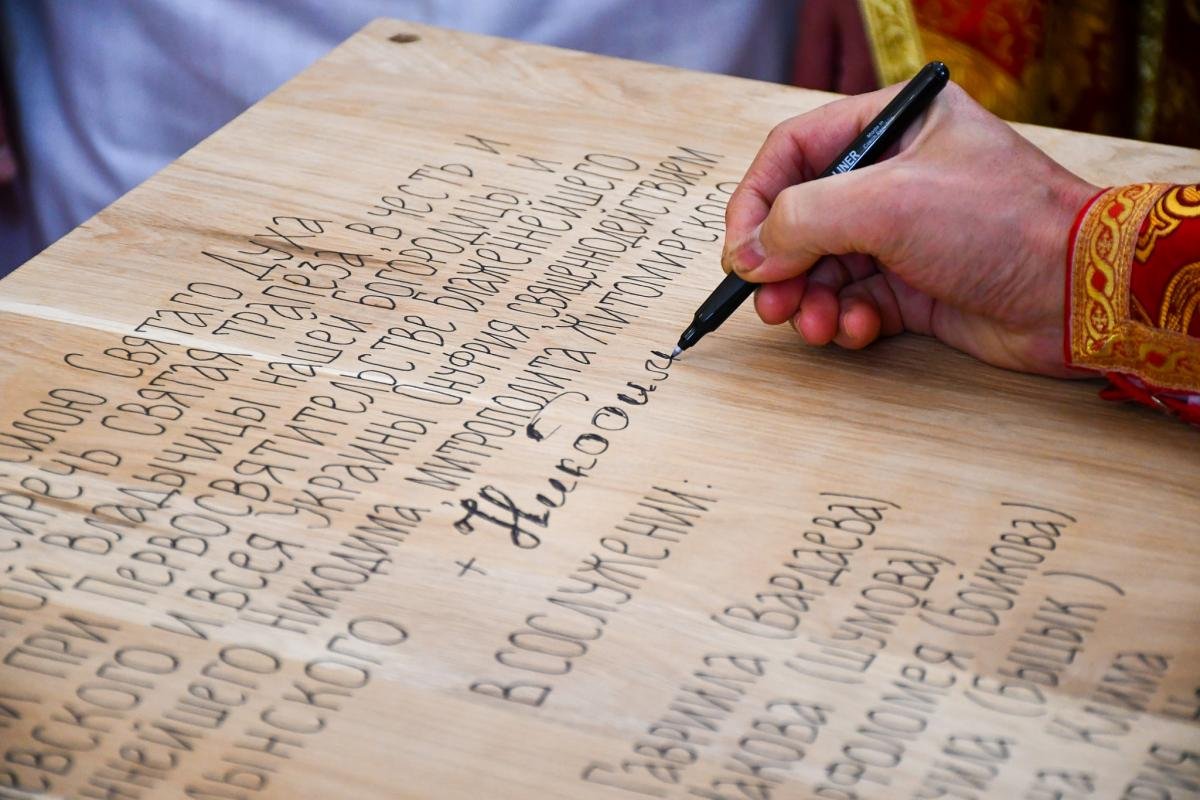 силою Святаго Духа
сиречь Святая трапеза, в честь и
ой Владычицы нашей Богородицы и
при Первосвятительстве Блаженнейшего
евского и всея Украины Онуфрия священнодействием
ннейшего Никодима митрополита Житомирского
ынского
+ Никодим
В сослужении:
Гавриила (Вардаева)
акова (Шумова)
фоломея (Бойкова)
(Выцык)
на Клима
рия
LINER
Made in